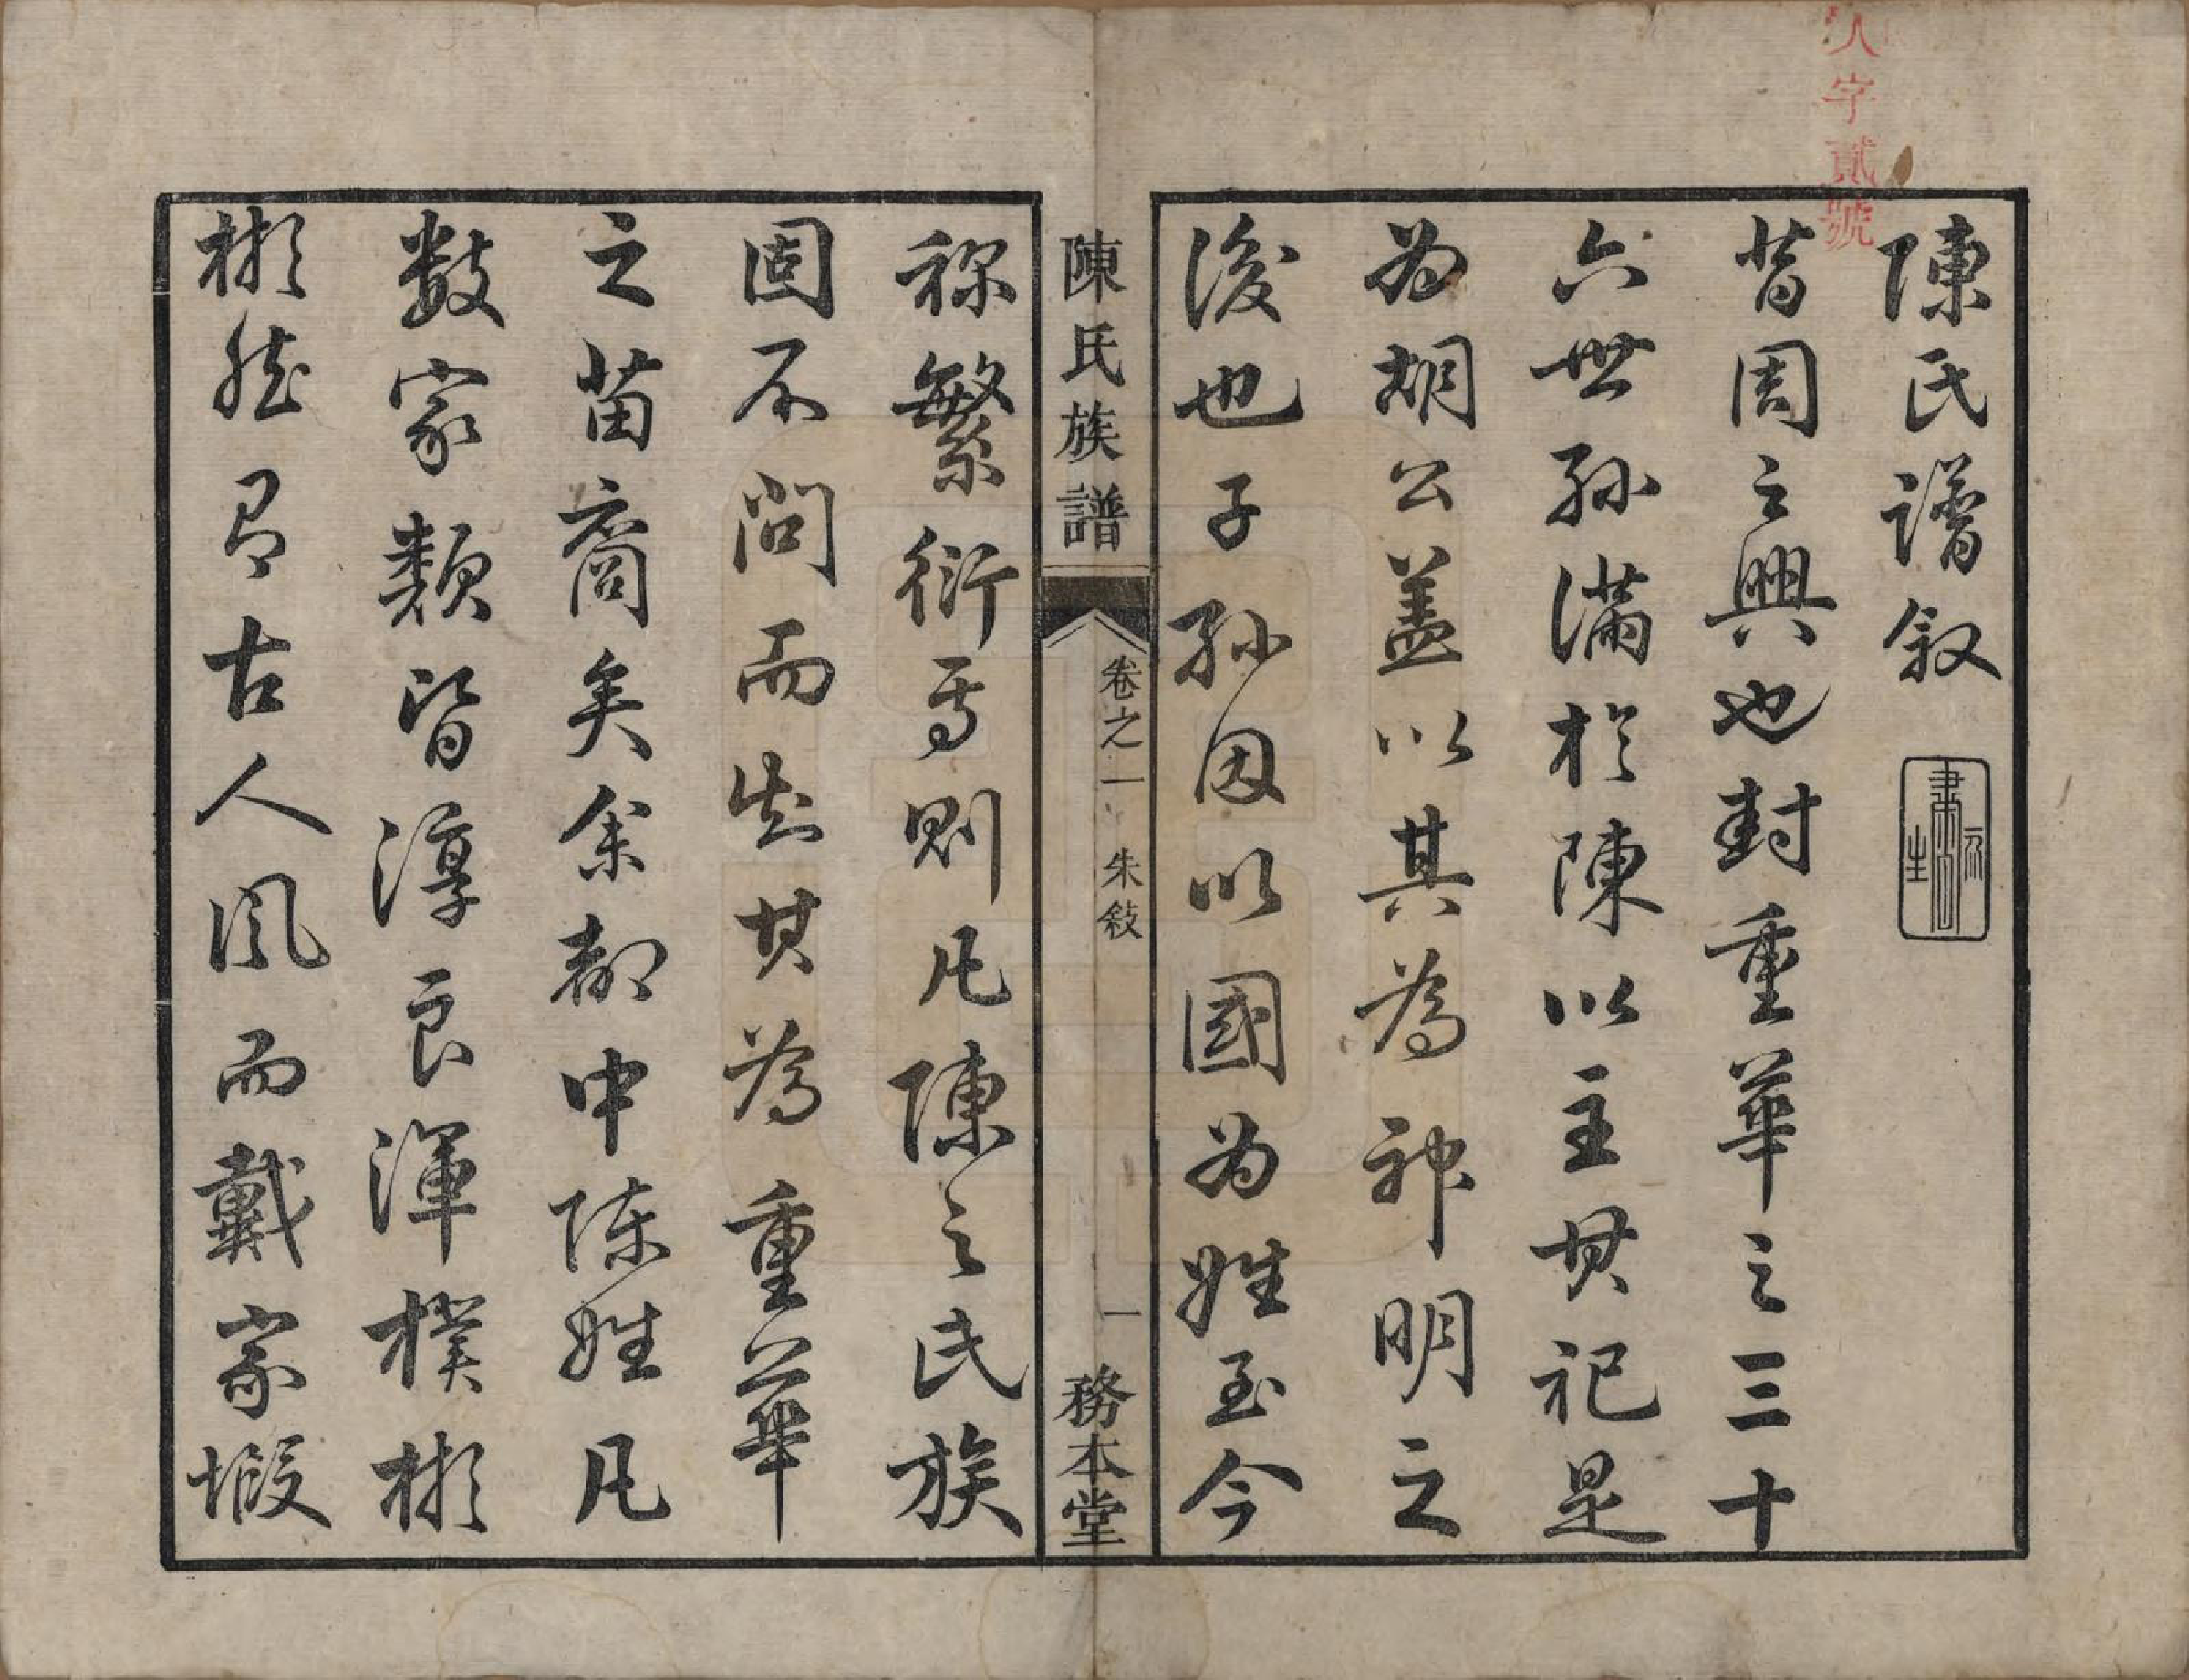 人字貳號
陳氏譜叙
昔周之興也封重華之三十
六世孫滿於陳以主其祀是
為胡公盖以其為神明之
後也子孫因以國為姓至今
陳氏族譜
卷之一
朱敍
一
務本堂
繁衍焉則凡陳之氏族
固不問而知其為重華
之苗裔矣余郡中陳姓凡
數家類皆淳良渾樸彬
彬然有古人風而戴家堠